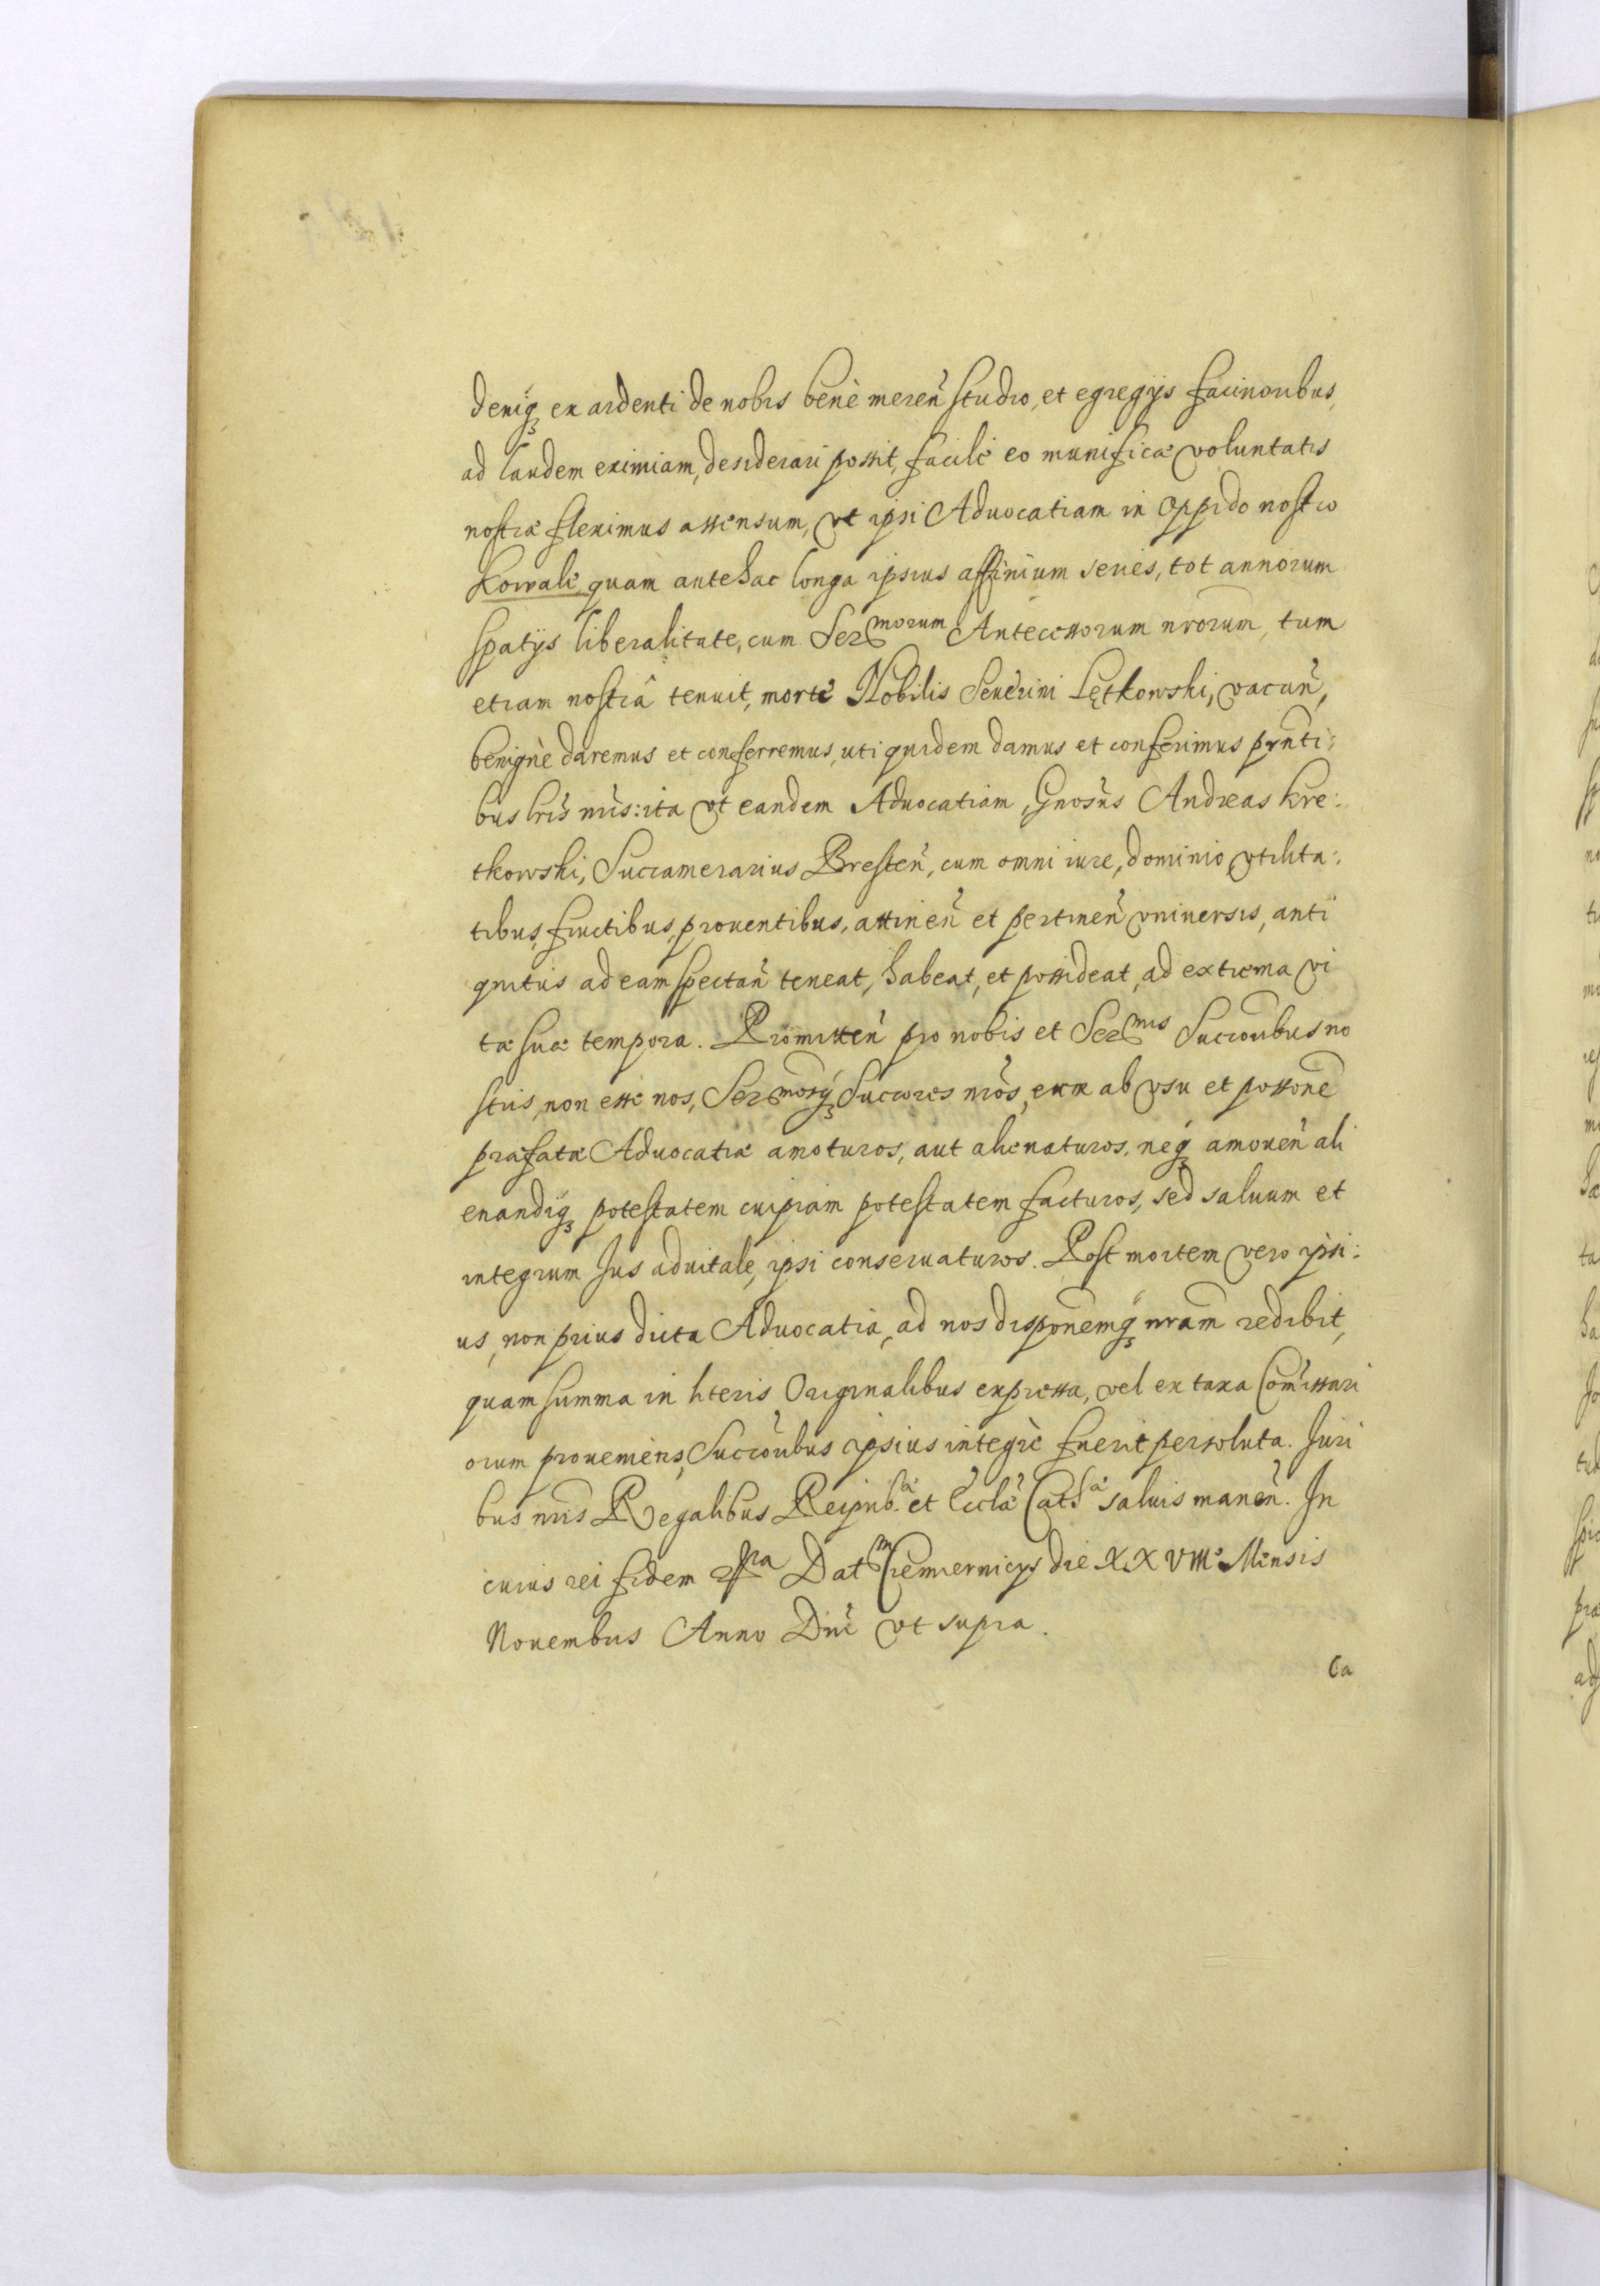 deniq ex ardenti de nobis benè meren̄ studio, et egregijs facinoribus,
ad laudem eximiam, desiderari possit, facilè eo munificæ voluntatis
nostræ fleximus assensum, vt ipsi Aduocatiam in Oppido nostro
Kowale, quam antehac longa ipsius affinium series, tot annorum
spatijs liberalitate, cum Ser morum Antecessorum nrorum, tum
etiam nostrâ tenuit, morte Nobilis Seuerini Lętkowski, vacan̄,
benignè daremus et conferremus, uti quidem damus et conferimus pn̄ti:
bus lris nris: ita vt eandem Aduocatiam, Gnosus Andreas Kre:
tkowski, Succamerarius Bresten̄, cum omni iure, dominio vtilita:
tibus, fructibus, prouentibus, attinen̄ et pertinen̄ vniuersis, anti
quitus ad eam spectan̄ teneat, habeat, et possideat, ad extrema vi
tæ suæ tempora. Promitten̄ pro nobis et Ser mis Succoribus no
stris, non esse nos, Ser mosq Succores nros, eum ab vsu et possone
præfatæ Aduocatiæ amoturos, aut alienaturos, neq amouen̄ ali
enandiq potestatem cuipiam potestatem facturos, sed saluum et
integrum Jus aduitale, ipsi conseruaturos. Post mortem vero ipsi:
us, non prius dicta Aduocatia, ad nos disponemq nram redibit,
quam summa in literis Originalibus expressa, vel ex taxa Comissari
orum proueniens, Succoribus ipsius integrè fuerit persoluta. Juri
bus nris Regalibus Reipub.æ et Eccla Cath.æ saluis manen̄. In
cuius rei fidem Dat die XXVIIIº Mensis
Nouembris Anno Dni vt supra.
Ca